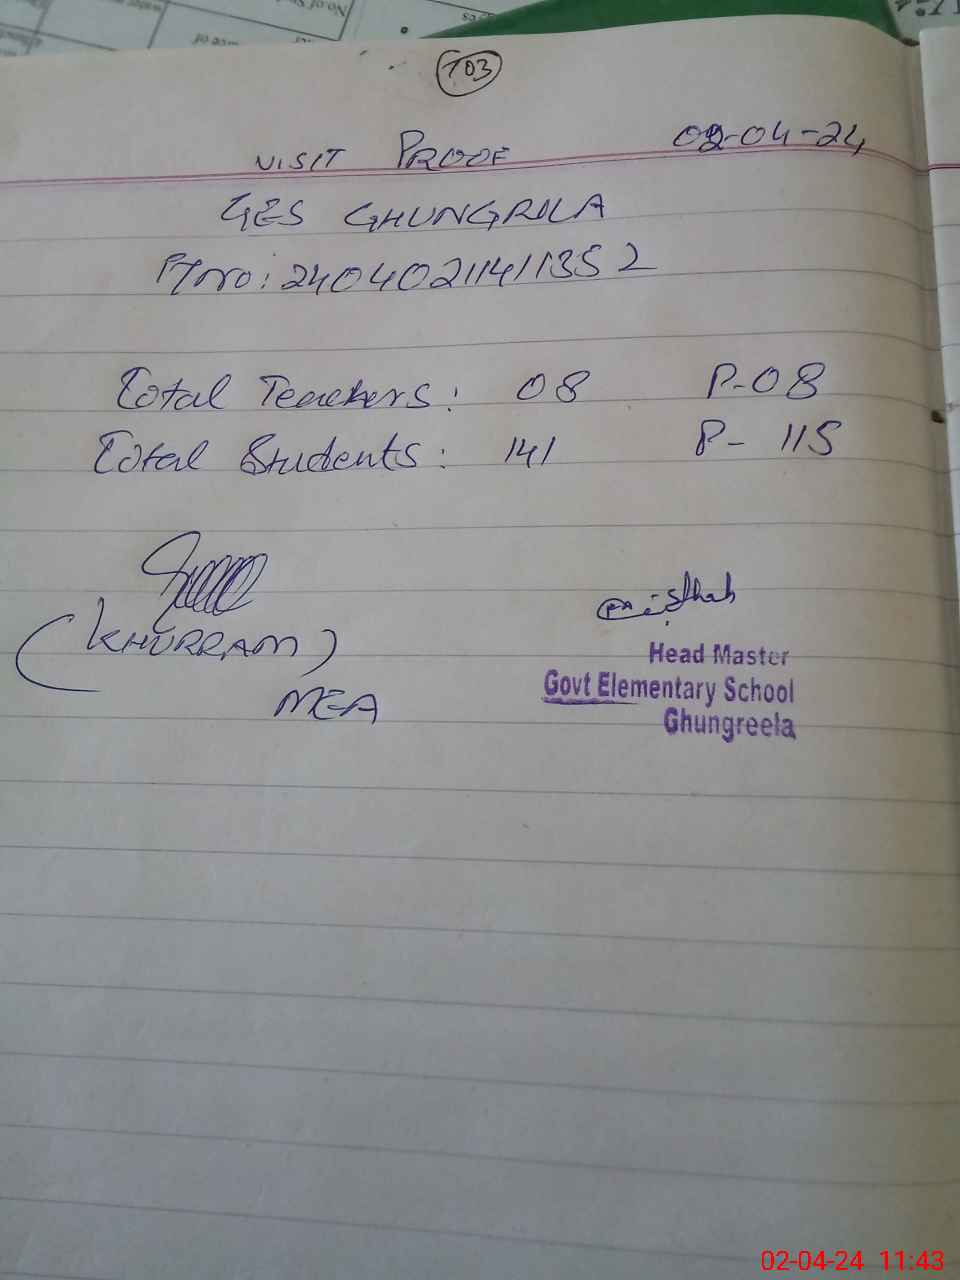 103
VISIT PROOF 02-04-24
GES GHUNGRILA
240402114111352
Total Teachers: 08 P-08
Total Students: 141 P- 115
(KHURRAM)
MEA
Head Master
Govt Elementary School
Ghungreela
02-04-24 11:43